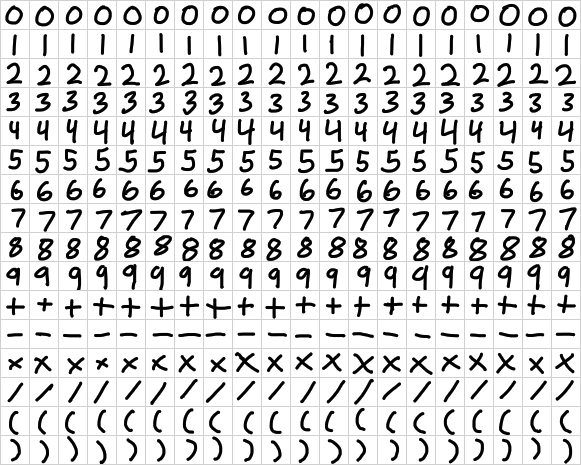 0 0 0 0 0 0 0 0 0 0 0 0 0 0 0 0 0 0 0 0
1 1 1 1 1 1 1 1 1 1 1 1 1 1 1 1 1 1 1 1
2 2 2 2 2 2 2 2 2 2 2 2 2 2 2 2 2 2 2 2
3 3 3 3 3 3 3 3 3 3 3 3 3 3 3 3 3 3 3 3
4 4 4 4 4 4 4 4 4 4 4 4 4 4 4 4 4 4 4 4
5 5 5 5 5 5 5 5 5 5 5 5 5 5 5 5 5 5 5 5
6 6 6 6 6 6 6 6 6 6 6 6 6 6 6 6 6 6 6 6
7 7 7 7 7 7 7 7 7 7 7 7 7 7 7 7 7 7 7 7
8 8 8 8 8 8 8 8 8 8 8 8 8 8 8 8 8 8 8 8
9 9 9 9 9 9 9 9 9 9 9 9 9 9 9 9 9 9 9 9
+ + + + + + + + + + + + + + + + + + + +
- - - - - - - - - - - - - - - - - - - -
× × × × × × × × × × × × × × × × × × × ×
/ / / / / / / / / / / / / / / / / / / /
( ( ( ( ( ( ( ( ( ( ( ( ( ( ( ( ( ( ( (
) ) ) ) ) ) ) ) ) ) ) ) ) ) ) ) ) ) ) )